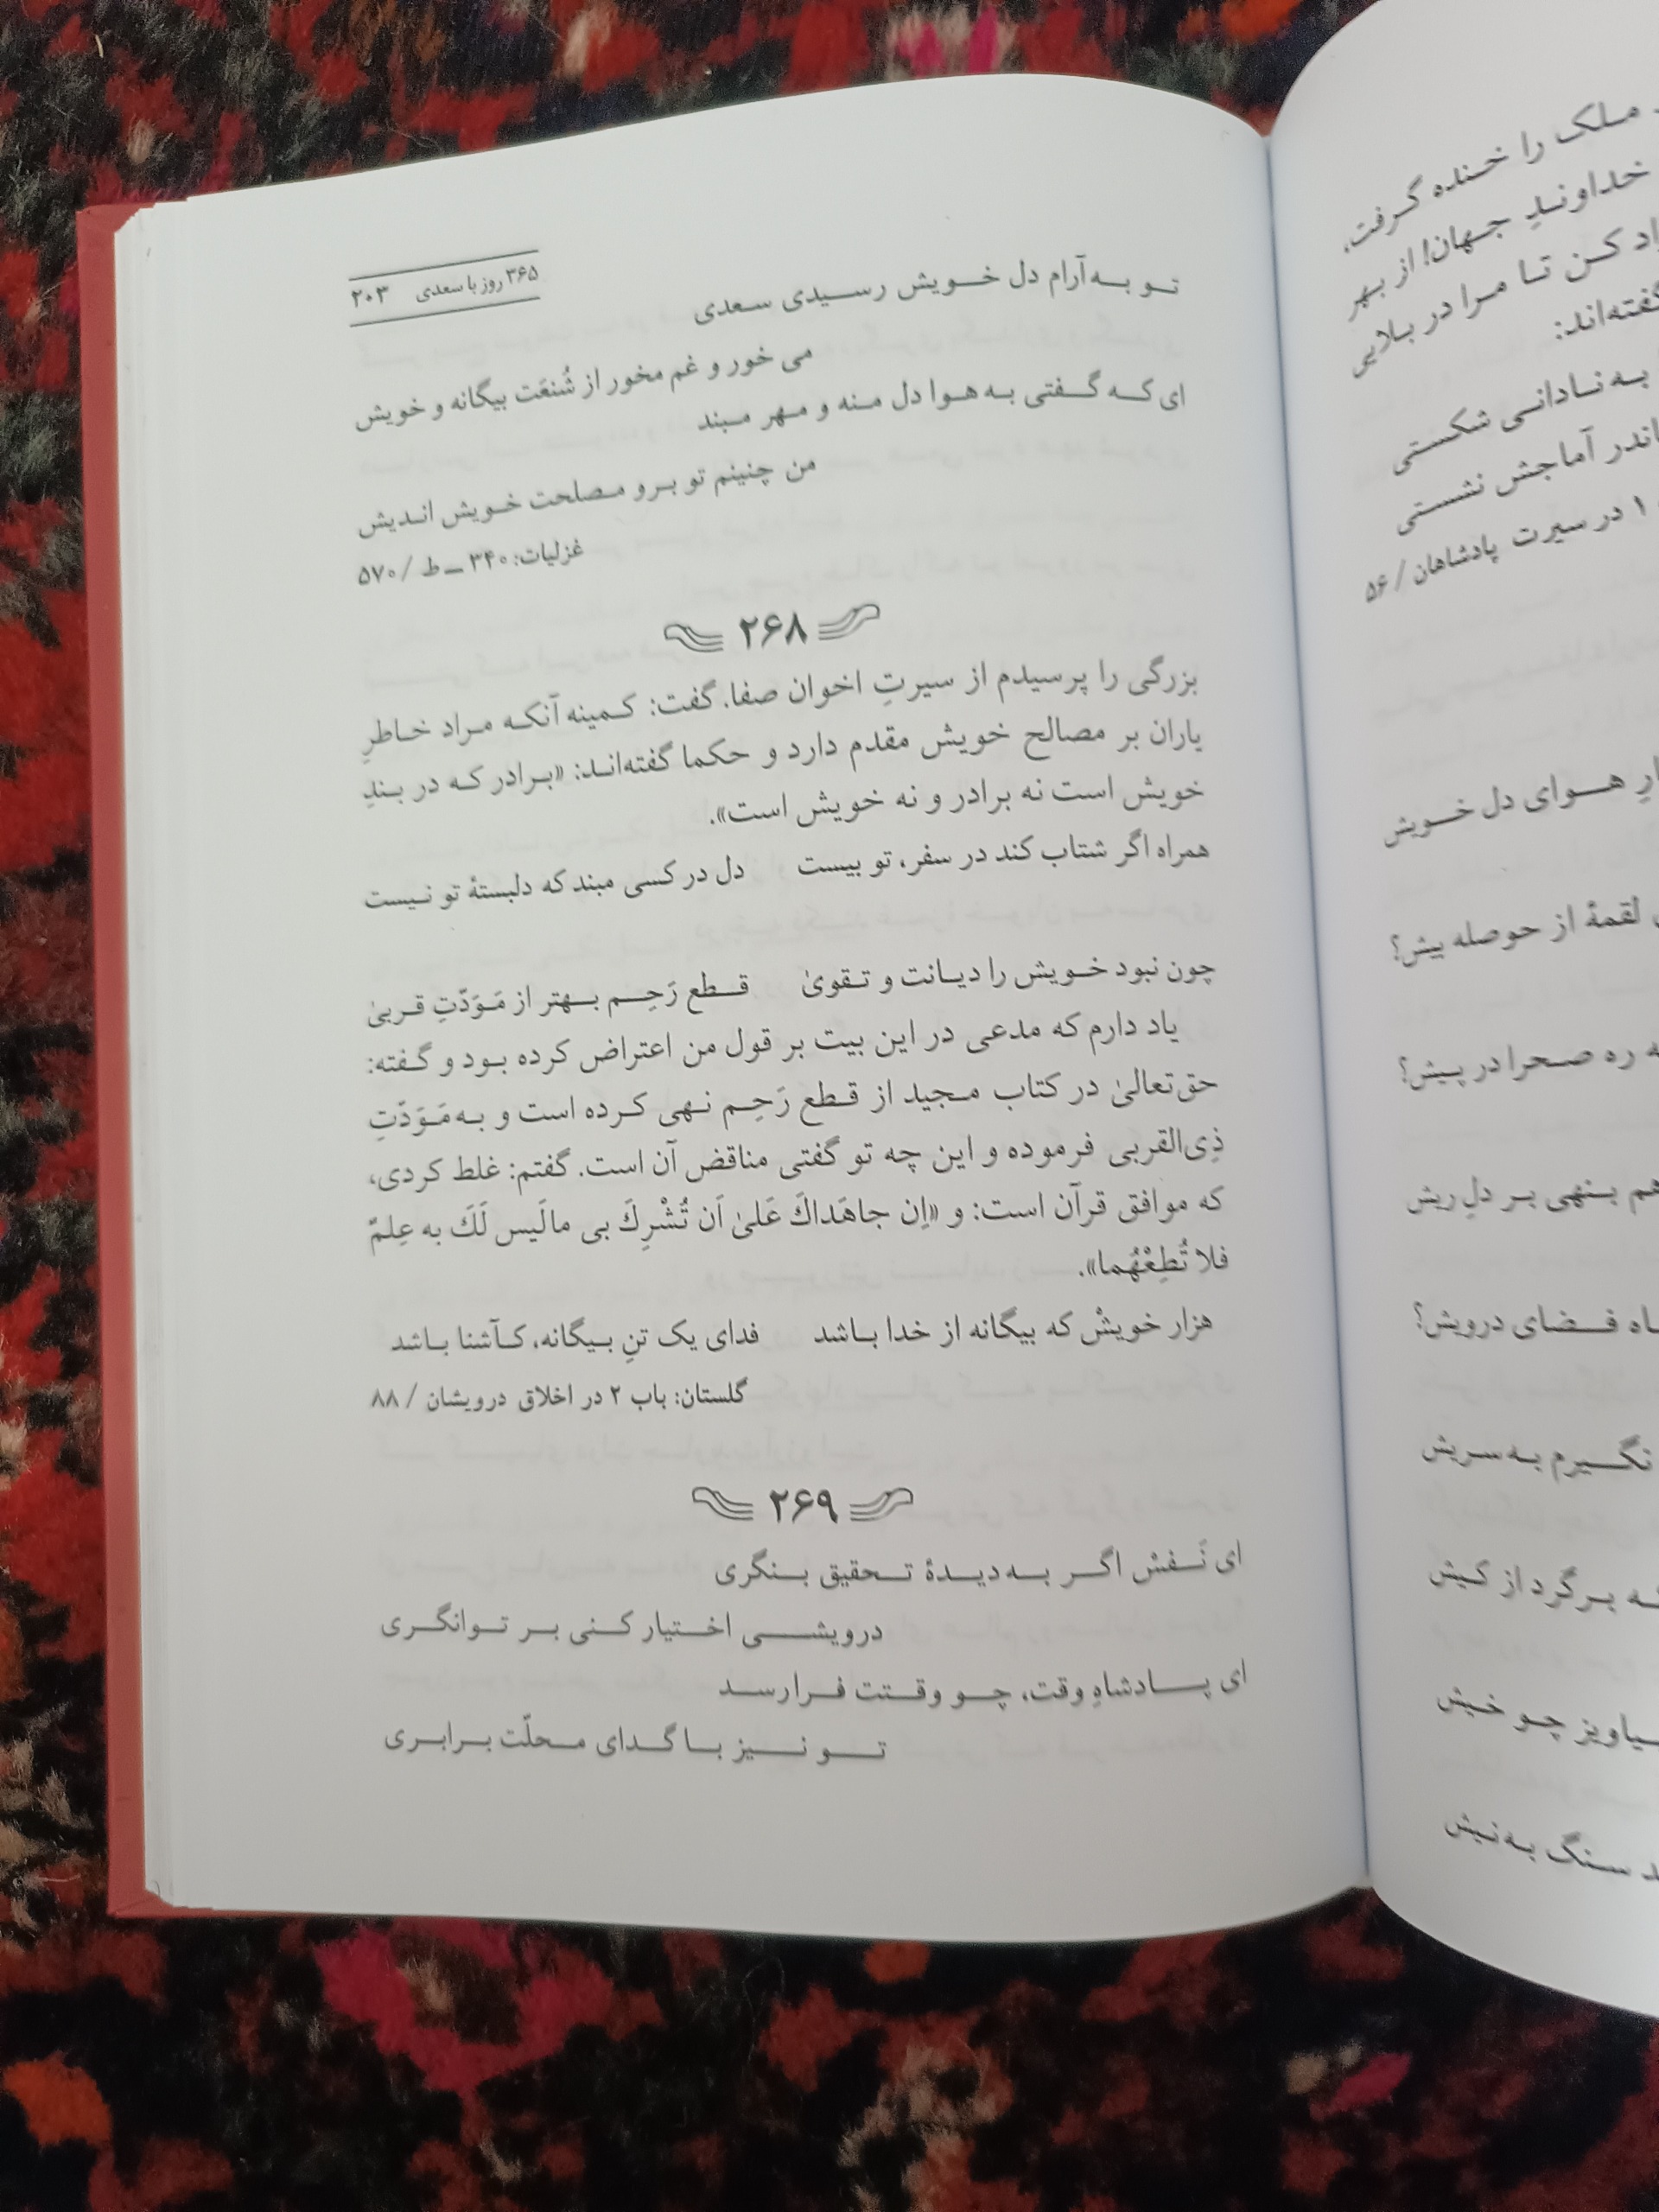 ۳۶۵ روز با سعدی ۲۰۳
تو به آرام دل خویش رسیدی سعدی
می خور و غم مخور از شُنعَت بیگانه و خویش
ای که گفتی به هوا دل منه و مهر مبند
من چنینم تو برو مصلحت خویش اندیش
غزلیات: ۳۴۰ ـ ط / ۵۷۰
۲۶۸
بزرگی را پرسیدم از سیرتِ اخوان صفا. گفت: کمینه آنکه مراد خاطرِ
یاران بر مصالح خویش مقدم دارد و حکما گفته‌اند: «برادر که در بندِ
خویش است نه برادر و نه خویش است».
همراه اگر شتاب کند در سفر، تو بیست دل در کسی مبند که دلبستهٔ تو نیست
چون نبود خویش را دیانت و تقویٰ قطع رَحِم بهتر از مَوَدّتِ قربیٰ
یاد دارم که مدعی در این بیت بر قول من اعتراض کرده بود و گفته:
حق‌تعالیٰ در کتاب مجید از قطع رَحِم نهی کرده است و به مَوَدّتِ
ذِی‌القربی فرموده و این چه تو گفتی مناقض آن است. گفتم: غلط کردی،
که موافق قرآن است: و «اِن جاهَداكَ عَلیٰ اَن تُشْرِكَ بی مالَیس لَكَ به عِلمٌ
فلا تُطِعْهُما».
هزار خویشْ که بیگانه از خدا باشد فدای یک تنِ بیگانه، کآشنا باشد
گلستان: باب ۲ در اخلاق درویشان / ۸۸
۲۶۹
ای نَفس اگر به دیدهٔ تحقیق بنگری
درویشی اختیار کنی بر توانگری
ای پادشاهِ وقت، چو وقتت فرارسد
تو نیز با گدای محلّت برابری
ملک را خنده گرفت،
خداوندِ جهان! از بهر
کن تا مرا در بلایی
گفته‌اند:
به نادانی شکستی
اندر آماجش نشستی
۱ در سیرت پادشاهان / ۵۶
هوای دل خویش
لقمهٔ از حوصله بیش؟
ره صحرا در پیش؟
هم بنهی بر دلِ ریش
فضای درویش؟
نگیرم به سریش
برگرد از کیش
چو خیش
سنگ به نیش